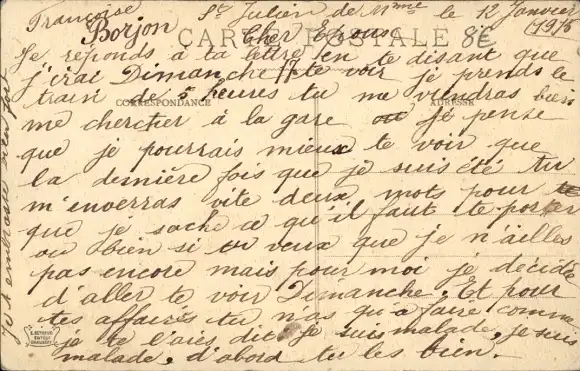 St Julien de Mme le 12 Janvier 1915
CARTE POSTALE
8E
Cher Epoux
Je réponds à ta lettre en te disant que
j'irai Dimanche 17 te voir je prends le
train de 5 heures tu me viendras bien
CORRESPONDANCE
ADRESSE
me chercher à la gare ou je pense
que je pourrais mieux te voir que
la dernière fois que je suis été tu
m'enverras vite deux mots pour
que je sache a qu'il faut te porter
ou bien si tu veux que je n'ailles
pas encore mais pour moi je décide
d'aller te voir Dimanche. Et pour
tes affaires tu n'as qu'à faire comme
je te l'ais dit je suis malade, je suis
malade, d'abord tu les bien.
Je t'embrasse bien fort
Françoise
Borjon